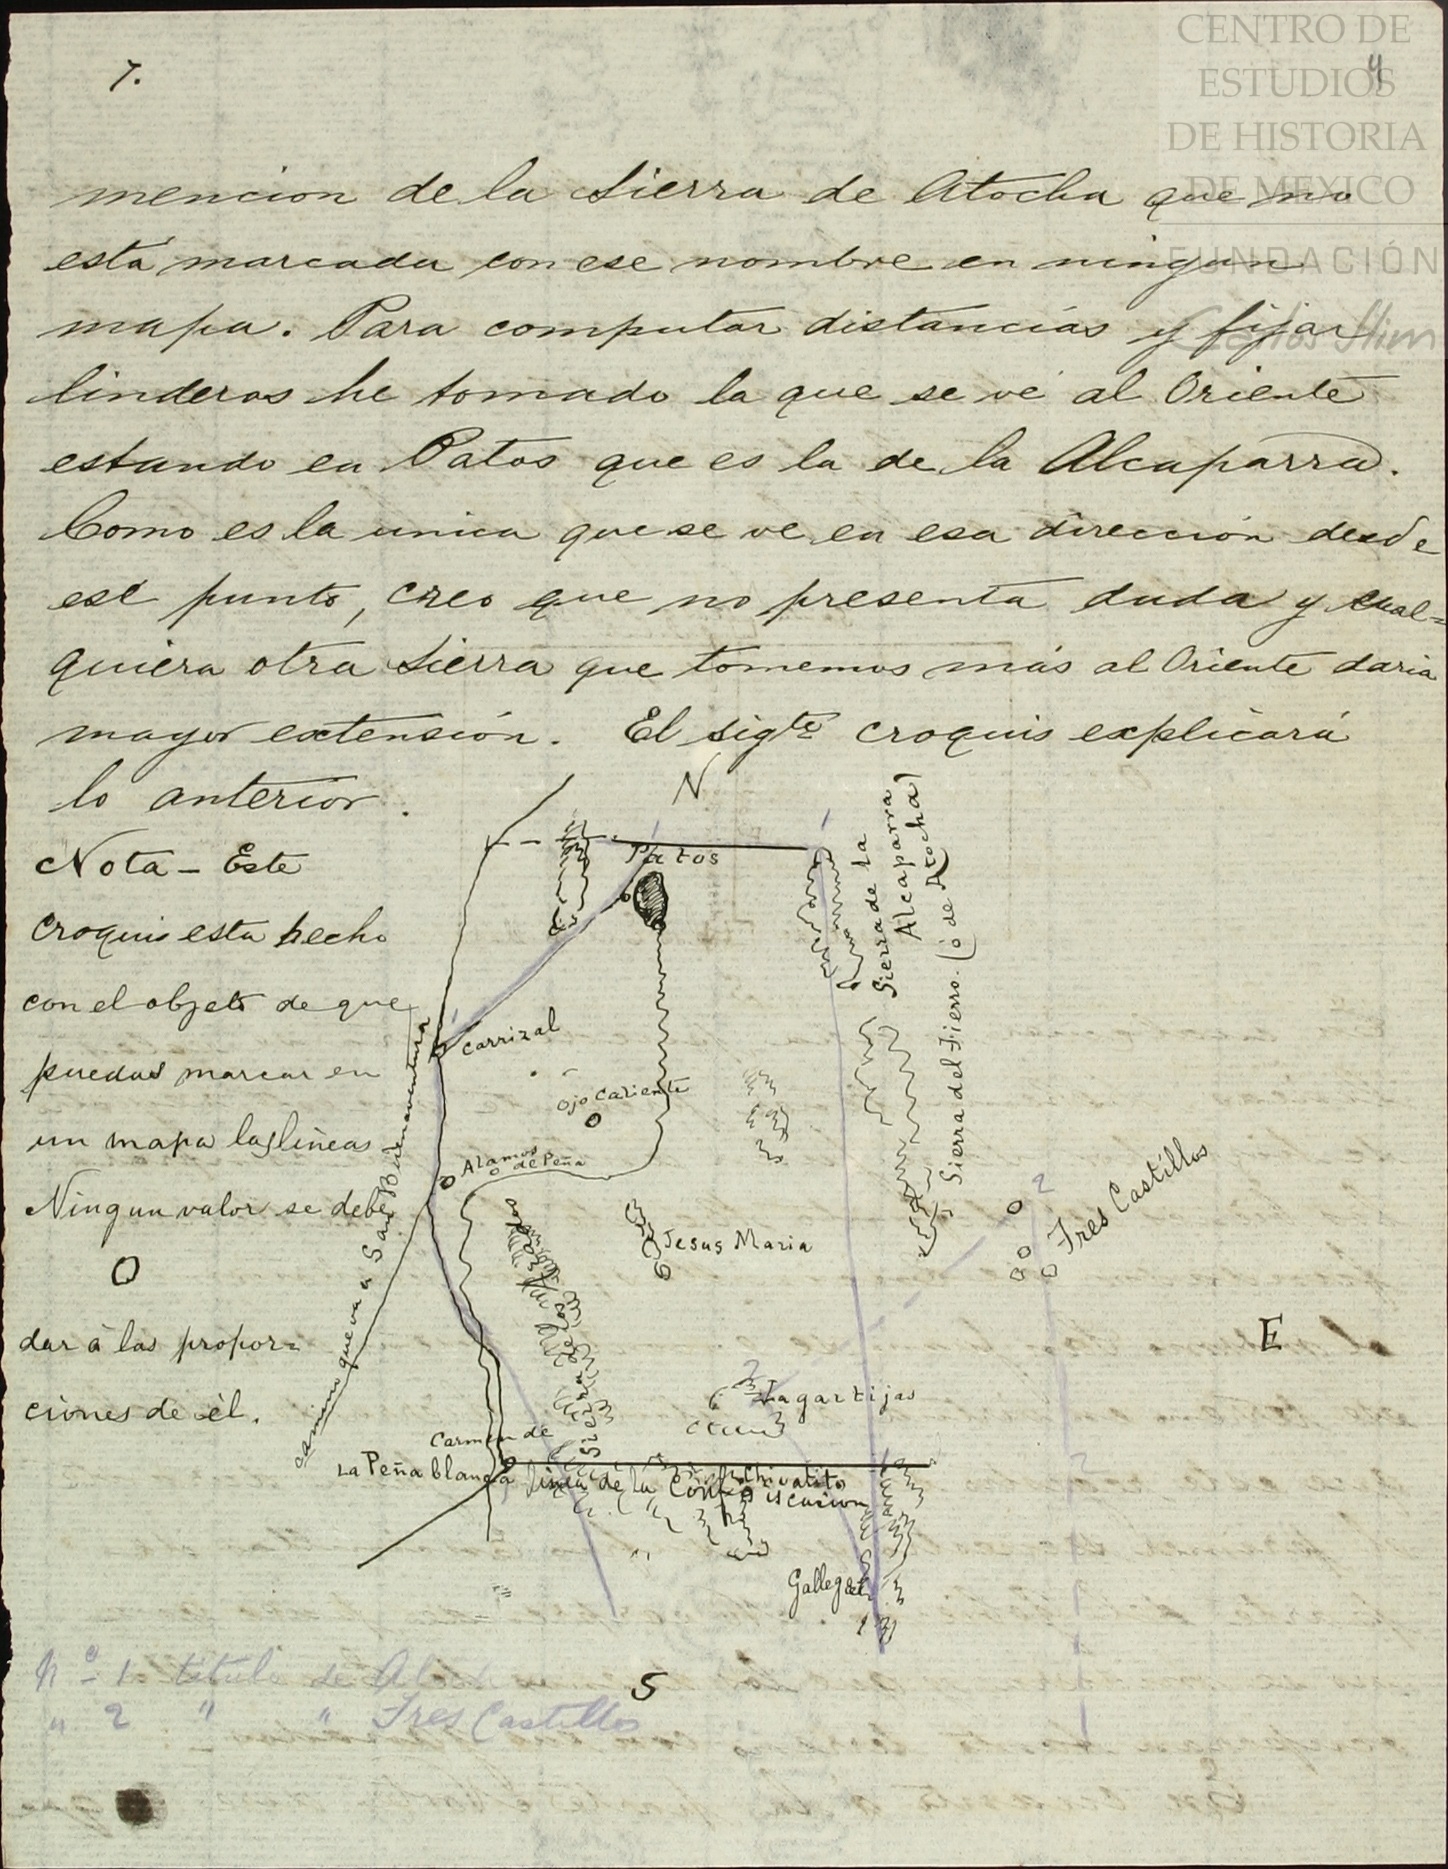 7.
4
CENTRO DE
ESTUDIOS
DE HISTORIA
DE MEXICO
FUNDACIÓN
Carlos Slim
mencion de la Sierra de Atocha que no
está marcada con ese nombre en ningun
mapa. Para computar distancias y fijar
linderos he tomado la que se vé al Oriente
estando en Patos que es la de la Alcaparra.
Como es la unica que se ve en esa dirección desde
ese punto, creo que no presenta duda y cual=
quiera otra Sierra que tomemos más al Oriente daria
mayor extensión. El sigte croquis explicará
lo anterior.
Nota - Este
croquis esta hecho
con el objeto de que
puedas marcar en
un mapa las lineas
Ningun valor se debe
dar á las propor=
ciones de él.
N
Patos
Sierra de la
Alcaparra
(ó de Atocha)
Sierra del Fierro.
Carrizal
Ojo Caliente
Alamos
de Peña
camino que va a San Buenaventura
Jesus Maria
2
Tres Castillos
E
Sierra de los
2
Lagartijas
Carmen de
La Peña blanca
linea de la Confiscacion
Chivatito
2
Gallego
S
1
Nº 1 titulo de
" 2 " " Tres Castillos